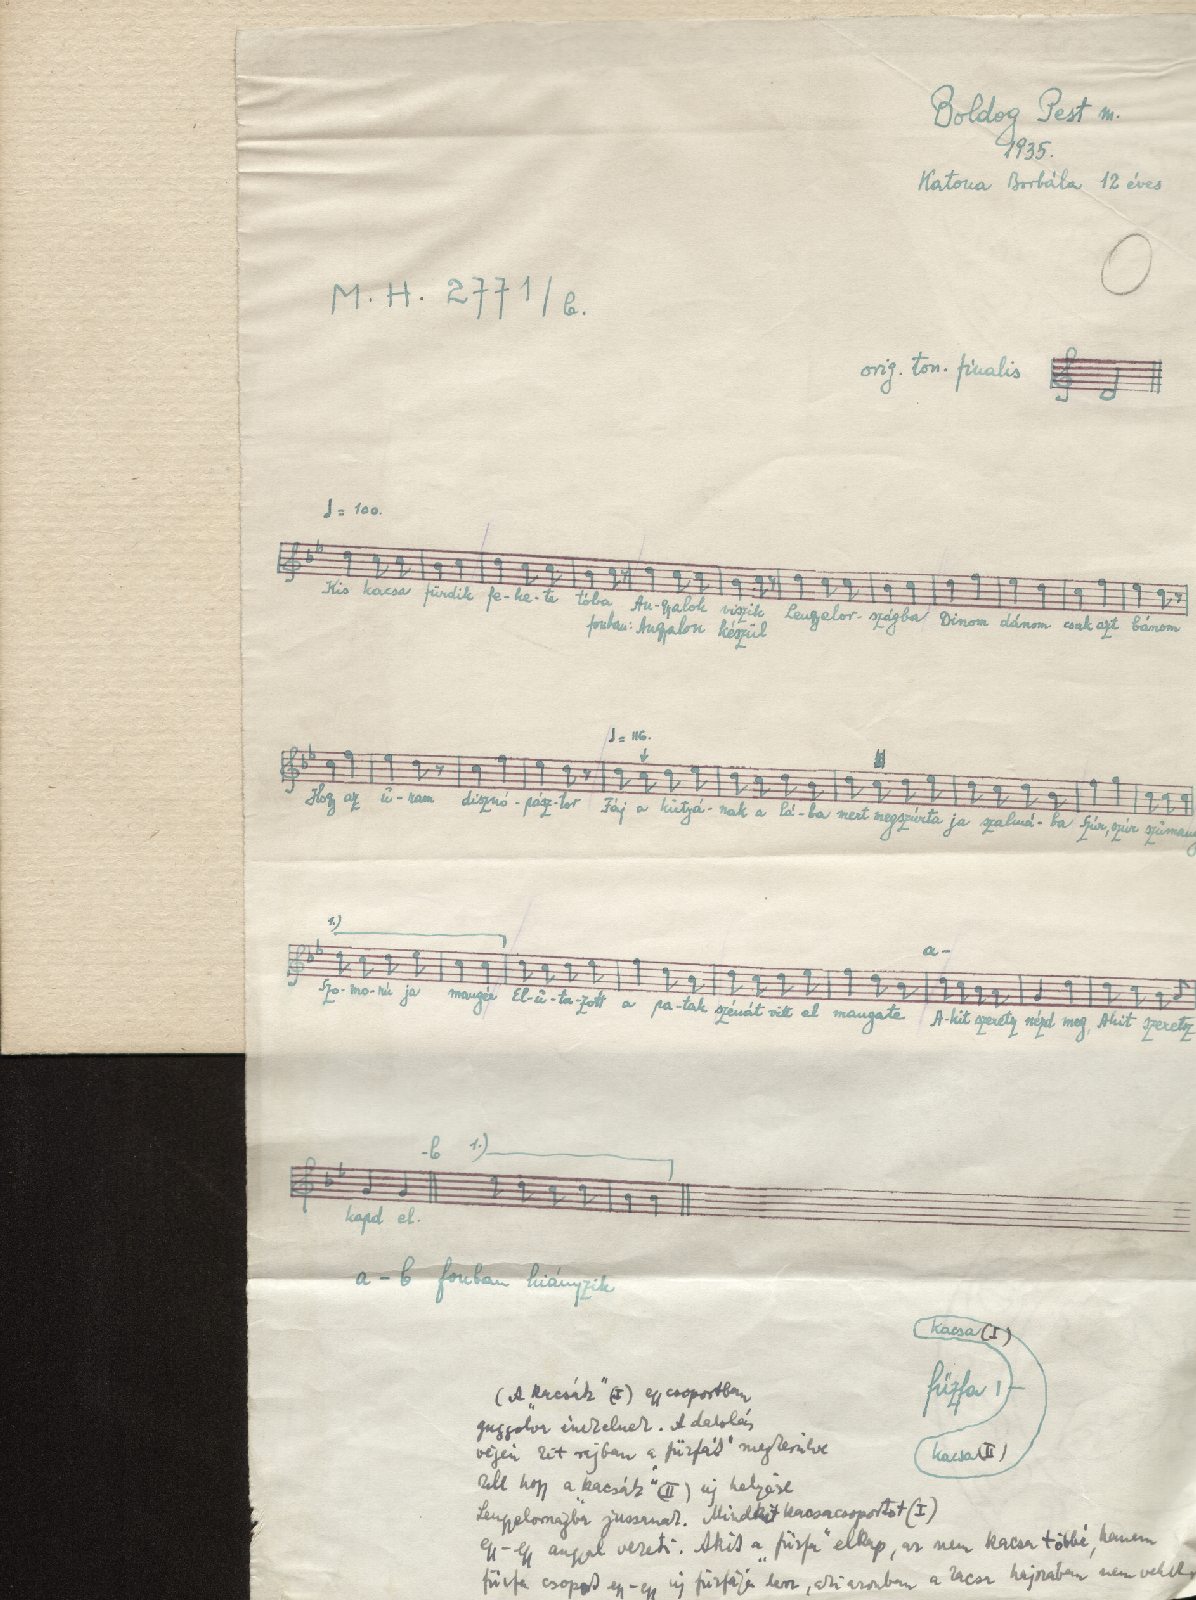 Boldog Pest m.
1935.
Katona Borbála 12 éves
M. H. 2771/b.
orig. ton. finalis
♩ = 100.
Kis kacsa fürdik fe-ke-te tóba An-gyalok viszik Lengyelor-szágba Dinom dánom csak azt bánom
fonban: Angyalon készül
♩ = 116.
Hogy az u-ram disznó-pász-tor Fáj a kutyá-nak a lá-ba mert megszúrta ja szalmá-ba Szúr, szúr
1.)
a-
Szo-mo-rú ja El-ú-ta-zott a pa-tak szénát vitt el A-kit szeretsz nézd meg, Akit szeretsz
-b 1.)
kapd el.
a - b fonban hiányzik
kacsa (I)
fűzfa 1
kacsa (II)
(A "kacsák" (I) egy csoportban
guggolva énekelnek. A dalolás
végén két rajban a "fűzfát" megkerülve
kell hogy a "kacsák" (II) új helyére
jussanak. Mindkét kacsacsoportot (I)
egy-egy angyal vezeti. Akit a "fűzfa" elkap, az nem kacsa többé, hanem
fűzfa csoport egy-egy új fűzfája lesz, aki azonban a kacsa nem